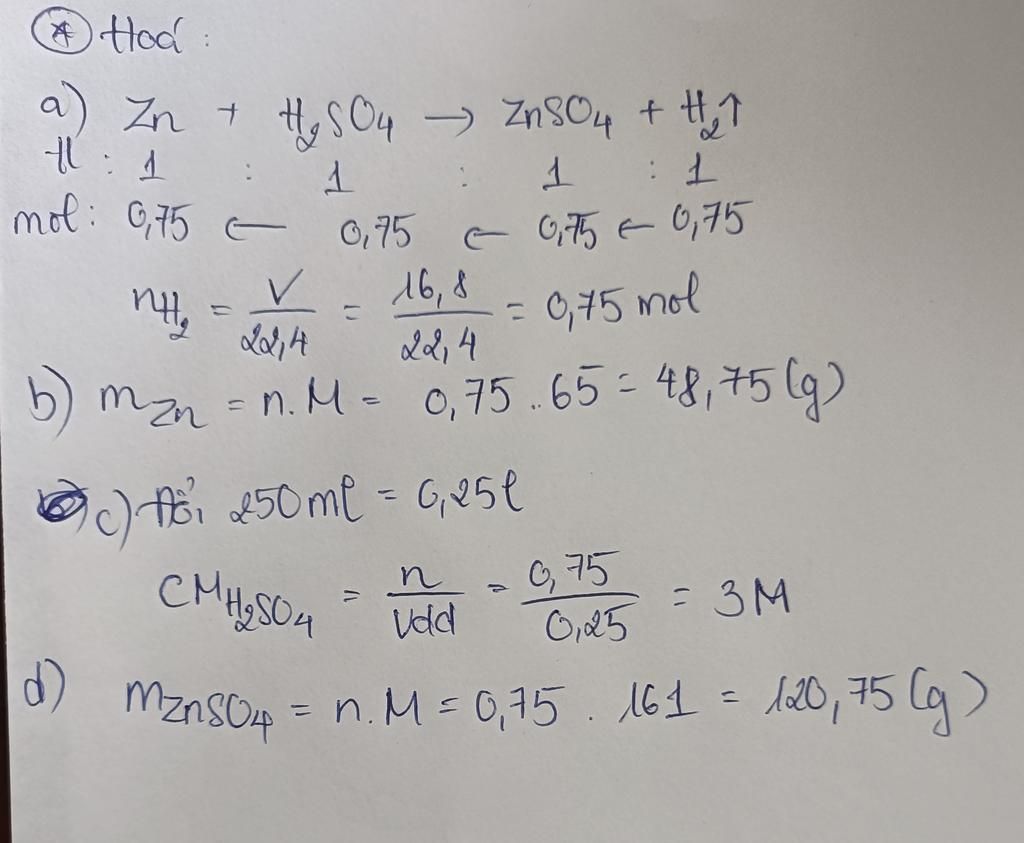 * Hoá:
a) Zn + H₂SO₄ → ZnSO₄ + H₂↑
tl: 1 : 1 : 1 : 1
mol: 0,75 ← 0,75 ← 0,75 ← 0,75
nH₂ = V/22,4 = 16,8/22,4 = 0,75 mol
b) mZn = n.M = 0,75 . 65 = 48,75 (g)
c) Đổi 250ml = 0,25l
CM H₂SO₄ = n/Vdd = 0,75/0,25 = 3M
d) mZnSO₄ = n.M = 0,75 . 161 = 120,75 (g)